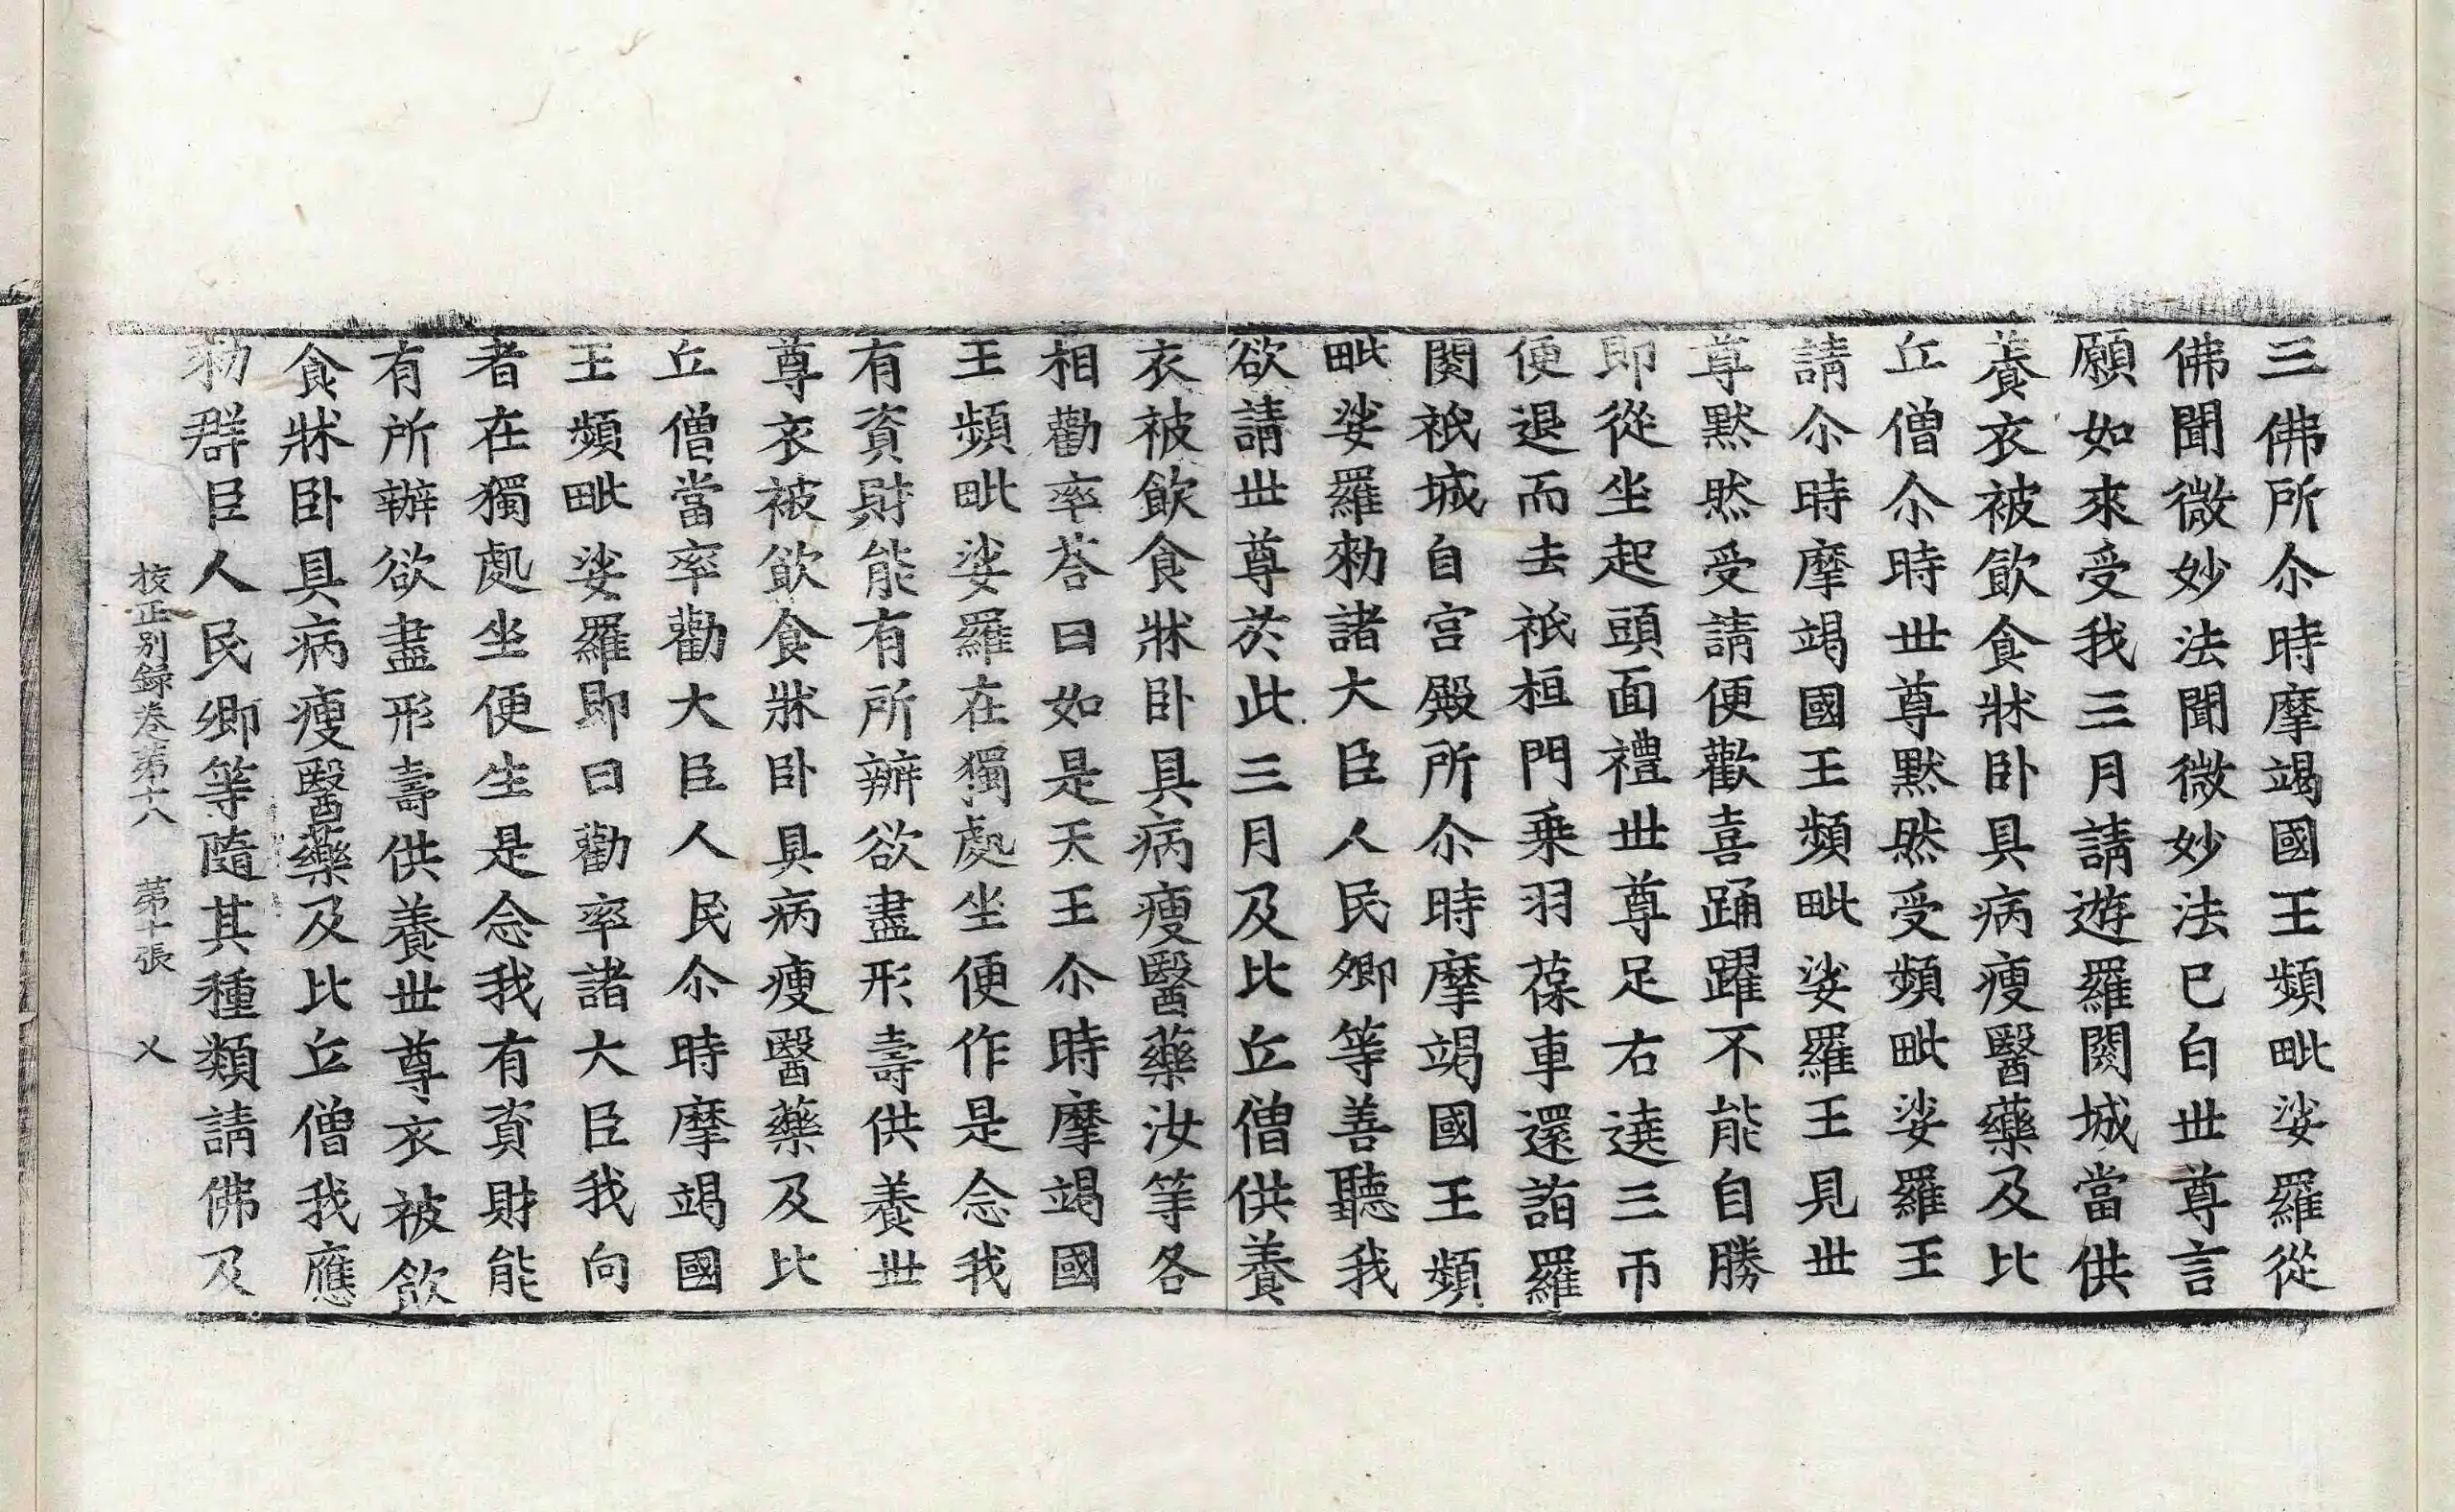 三佛所尒時摩竭國王頻毗娑羅從
佛聞微妙法聞微妙法已白世尊言
願如來受我三月請遊羅閱城當供
養衣被飲食牀卧具病瘦醫藥及比
丘僧尒時世尊黙然受頻毗娑羅王
請尒時摩竭國王頻毗娑羅王見世
尊黙然受請便歡喜踊躍不能自勝
即從坐起頭面禮世尊足右遶三帀
便退而去祇桓門乗羽葆車還詣羅
閱祇城自宫殿所尒時摩竭國王頻
毗娑羅勑諸大臣人民卿等善聽我
欲請世尊於此三月及比丘僧供養
衣被飲食牀卧具病瘦醫藥汝等各
相勸率荅曰如是天王尒時摩竭國
王頻毗娑羅在獨處坐便作是念我
有資財能有所辦欲盡形壽供養世
尊衣被飲食牀卧具病瘦醫藥及比
丘僧當率勸大臣人民尒時摩竭國
王頻毗娑羅即曰勸率諸大臣我向
者在獨處坐便生是念我有資財能
有所辦欲盡形壽供養世尊衣被飲
食牀卧具病瘦醫藥及比丘僧我應
勑群臣人民卿等隨其種類請佛及
校正別録卷第十八 第十張 乂